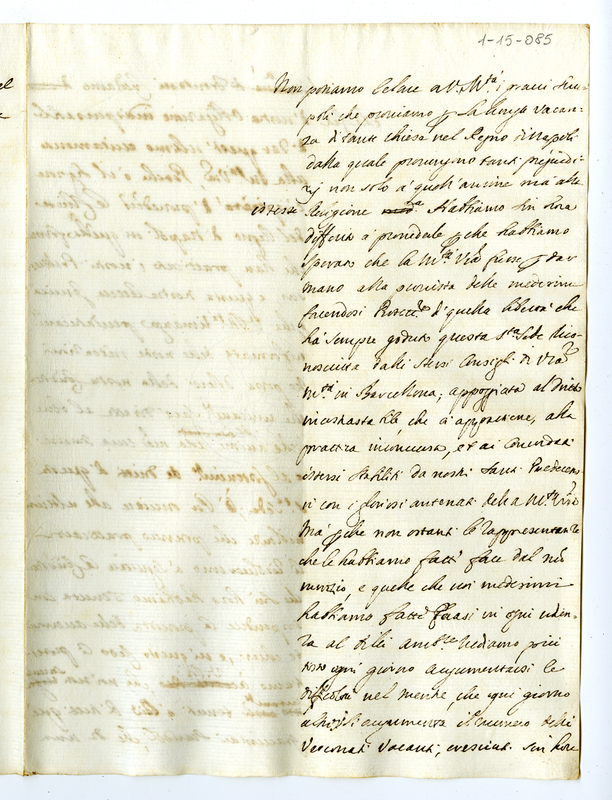 1-15-085
Non possiamo celare a V. M.tà i gravi scru-
poli che proviamo p la lunga vacan-
za di tante chiese nel Regno di Napoli
dalla quale provengono tanti pregiudi-
zij non solo a quelle anime ma alla
istessa Religione. Habbiamo sin ora
differito a provederle p che habbiamo
sperato che la M.tà V.ra fusse p dar
mano alla provista delle medesime
facendosi d'quella libertà che
ha sempre goduto questa S.ta Sede rico-
nosciuta dalli stessi Consigli di V.ra
M.tà in Barcellona; appoggiata al dritto
incontrastabile, che ci appartiene, alla
prattica inconcussa, et ai Concordati
istessi stabiliti da nostri Santi Predecess
ri con i gloriosi antenati della M.tà V.ra
Ma p che non ostanti le rappresentanze
che le habbiamo fatte fare dal nro
nunzio, e quelle che noi medesimi
habbiamo fatte in ogni udien-
za al di lei amb.re vediamo più
tosto ogni giorno augumentarsi le
difficoltà nel mentre, che ogni giorno
augumenta il numero delli
Vescovati vacanti, cresciuti sin hora